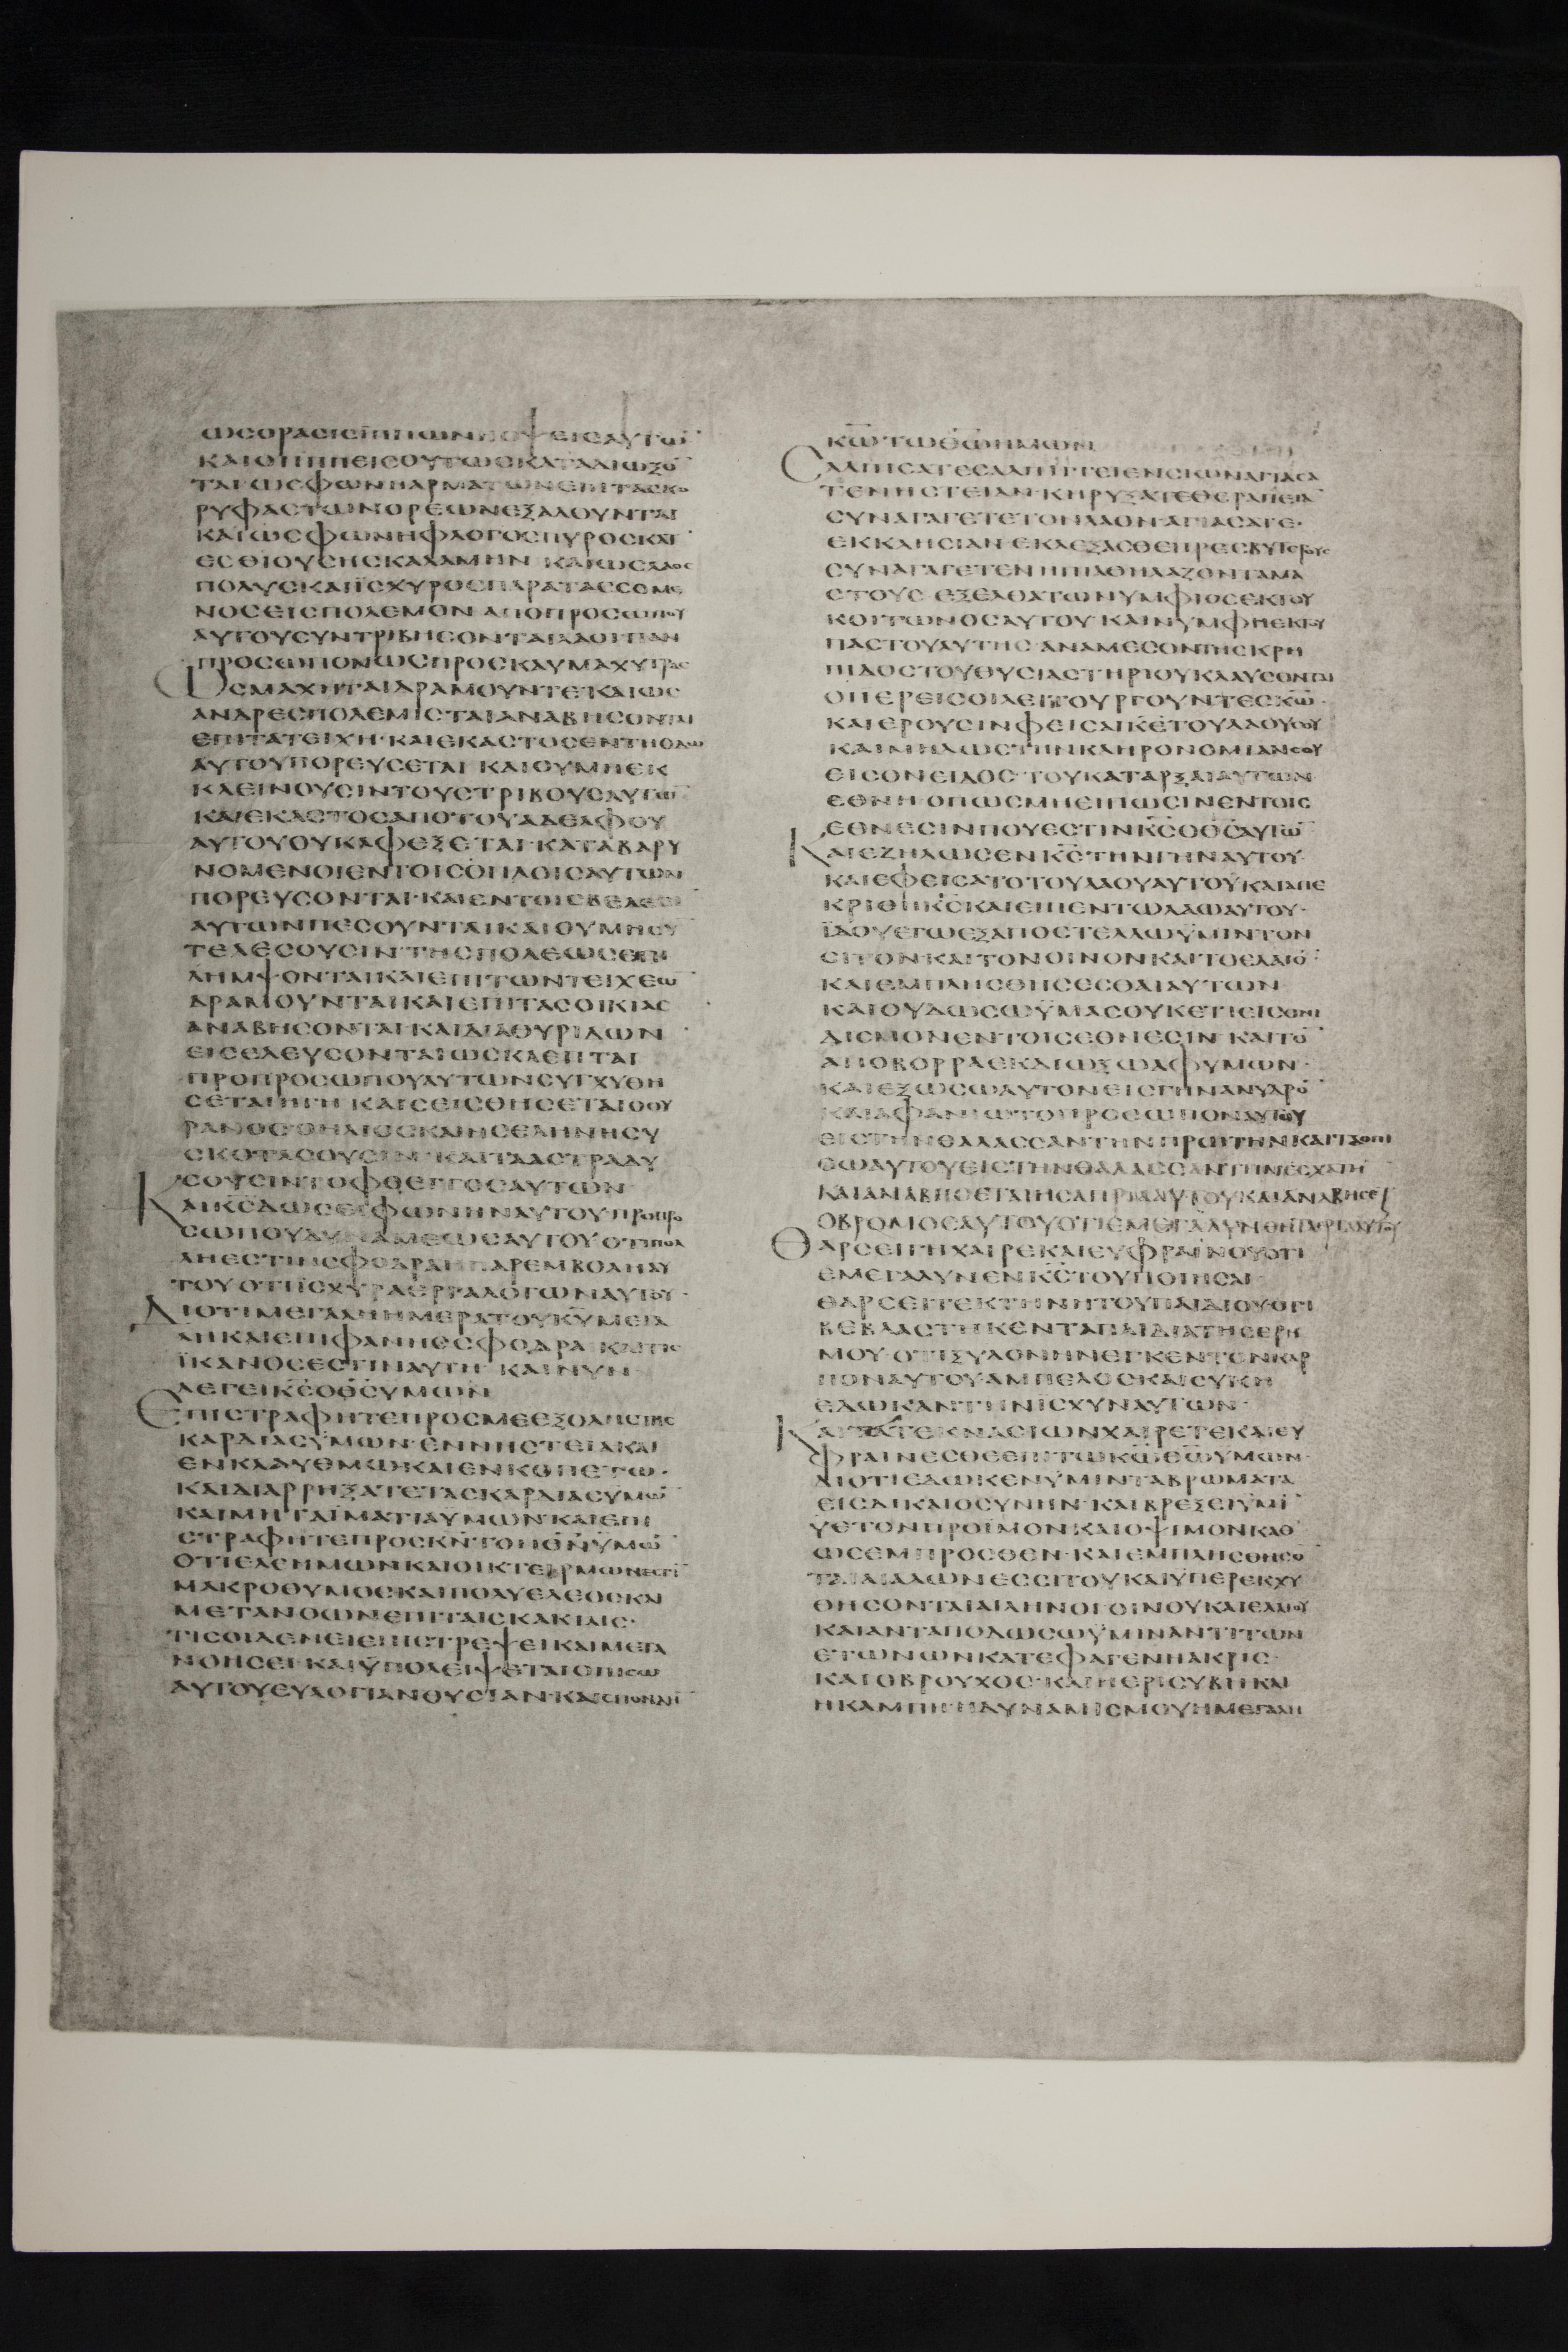 ωσορασισϊππωνηοψεισαυτω̅
καιωσϊππεισουτωσκαταδιωξο̅
ταιωσφωνηαρματωνεπιτασκο
ρυφαστωνορεωνεξαλουνται
καιωσφωνηφλογοσπυροσκατ
εσθιουσησκαλαμην καιωσλαοσ
πολυσκαιϊσχυροσπαρατασσομε
νοσεισπολεμον αποπροσωπου
αυτουσυντριβησονταιλαοιπαν
προσωπονωσπροσκαυμαχυτρασ
Ωσμαχηταιδραμουντεκαιωσ
ανδρεσπολεμισταιαναβησονται
επιτατειχη·καιεκαστοσεντηοδω
αυτουπορευσεται καιουμηεκ
κλεινουσιντουστριβουσαυτω̅
καιεκαστοσαποτουαδελφου
αυτουουκαφεξεται·καταβαρυ
νομενοιεντοισοπλοισαυτων
πορευσονται·καιεντοισβελεσι
αυτωνπεσουνταικαιουμησυ
τελεσουσιν·τησπολεωσεπι
λημψονταικαιεπιτωντειχεω̅
δραμουνταικαιεπιτασοικιασ
αναβησονται·καιδιαθυριδων
εισελευσονταιωσκλεπται
προπροσωπουαυτωνσυγχυθη
σεταιηγη καισεισθησεταιοου
ρανοσ·οηλιοσκαιησεληνησυ
σκοτασουσιν·καιτααστραδυ
σουσιντοφθεγγοσαυτων
Καικ̅σ̅δωσειφωνηναυτουπροπρο
σωπουδυναμεωσαυτουοτιπολ
ληεστινσφοδραηπαρεμβοληαυ
τουοτιϊσχυραεργαλογωναυτου·
Διοτιμεγαληημερατουκ̅υ̅μεγα
ληκαιεπιφανησσφοδρα καιτισ
ϊκανοσεστιναυτη· καινυν
λεγεικ̅σ̅οθ̅σ̅υμων
Επιστραφητεπροσμεεξοληστησ
καρδιασϋμων·εννηστειακαι
ενκλαυθμωκαιενκοπετω·
καιδιαρρηξατετασκαρδιασυμω̅
καιμηταϊματιαυμων·καιεπι
στραφητεπροσκ̅ν̅τονθ̅ν̅ϋμω̅
οτιελεημωνκαιοικτειρμωνεστι̅
μακροθυμοσκαιπολυελεοσκαι
μετανοωνεπιταισκακιαισ·
τισοιδενειεπιστρεψεικαιμετα
νοησει·καιϋπολειψεταιοπισω
αυτουευλογιανθυσιαν·καισπονδη̅
κ̅ω̅τωθ̅ω̅ημων
Σαλπισατεσαλπιγγιενσιωναγιασα
τενηστειαν·κηρυξατεθεραπεια̅
συναγαγετετονλαον·αγιασατε·
εκκλησιαν·εκλεξασθεπρεσβυτερουσ
συναγαγετενηπιαθηλαζονταμα
στουσ·εξελθατωνυμφιοσεκτου
κοιτωνοσαυτου·καινυμφηεκτου
παστουαυτησ·αναμεσοντησκρη
πιδοστουθυσιαστηριουκλαυσονται
οπερεισοιλειτουργουντεσκ̅ω̅·
καιερουσινφεισαικ̅ε̅τουλαουσου
καιμηδωστηνκληρονομιανσου
εισονειδοσ·τουκαταρξαιαυτων
εθνη·οπωσμηειπωσινεντοισ
εθνεσινπουεστινκ̅σ̅οθ̅σ̅αυτω̅
Καιεζηλωσενκ̅σ̅τηνγηναυτου·
καιεφεισατοτουλαουαυτου·καιαπε
κριθηκ̅σ̅καιειπεντωλαωαυτου·
ϊδουεγωεξαποστελλωϋμιντον
σιτονκαιτονοινονκαιτοελαιο̅
καιεμπλησθησεσθαιαυτων
καιουδωσωϋμασουκετιεισονι
δισμονεντοισεθνεσιν·καιτο̅
αποβορραεκδιωξωαφυμων·
καιεξωσωαυτονεισγηνανυδρο̅
καιαφανιωτοπροσωποναυτου
εισтηνθαλασσαντηνπρωτηνκαιταοπι
σωαυτουειστηνθαλασσαντηνεσχατη̅
καιαναβησεταιησαπριααυτουκαιαναβησεται
οβρομοσαυτουοτιεμεγαλυνθηταεργααυτου
Θαρσειγηχαιρεκαιευφραινουοτι
εμεγαλυνενκ̅σ̅τουποιησαι
θαρσειτεκτηνητουπαιδιουοτι
βεβλαστηκενταπαιδιατησερη
μου·οτιξυλονηνεγκεντονκαρ
ποναυτουαμπελοσκαισυκη
εδωκαντηνϊσχυναυτων·
Καιτατεκνασιωνχαιρετεκαιευ
φραινεσθεεπιτωκ̅ω̅θ̅ω̅ϋμων·
διοτιεδωκενϋμινταβρωματα
εισδικαιοσυνην·καιβρεξειϋμι̅
ϋετονπροϊμονκαιοψιμονκαθ
ωσεμπροσθεν·καιεμπλησθησο̅
ταιαιαλωνεσσιτουκαιϋπερεκχυ
θησονταιαιληνοιοινουκαιελαιου
καιανταποδωσωϋμιναντιτων
ετωνωνκατεφαγενηακρισ·
καιοβρουχοσ·καιηερισυβηκαι
ηκαμπη·ηδυναμισμουημεγαλη